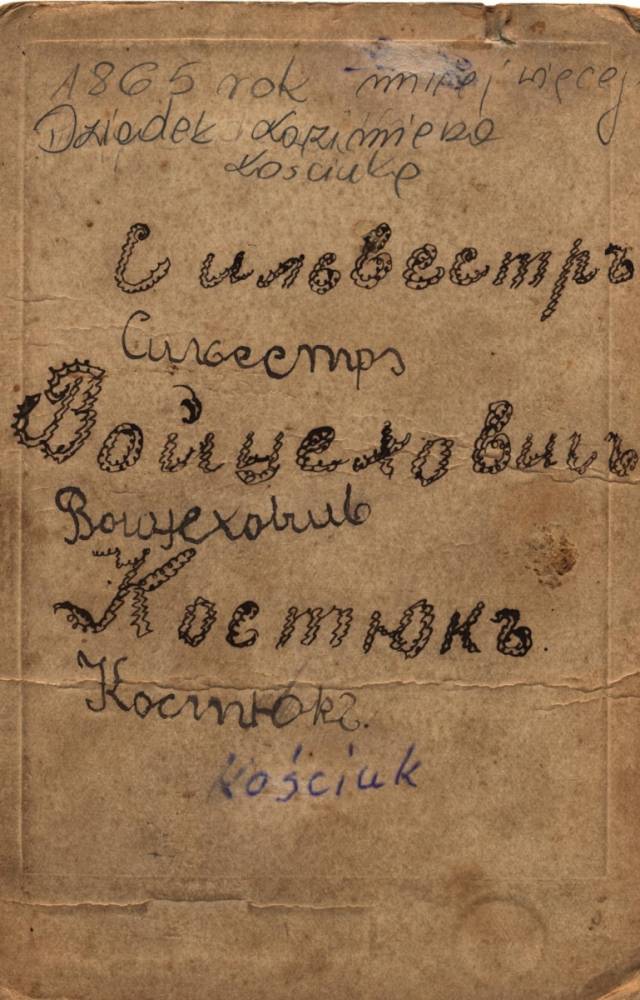 1865 rok mniej więcej
Dziadek Kazimierza
Kościuka
Сильвестръ
Сильвестръ
Войцеховичъ
Войцеховичъ
Костюкъ.
Костюкъ.
Kościuk